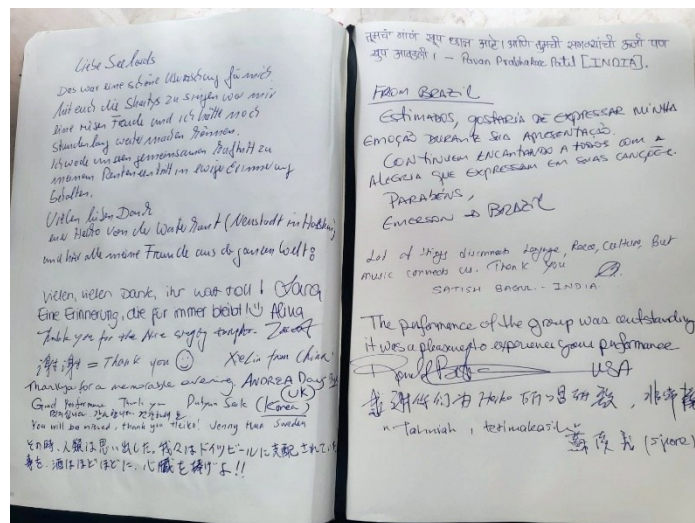 Liebe Seelords
Das war eine schöne Überraschung für mich.
Mit euch die Shantys zu singen war mir
eine riesen Freude und ich hätte noch
stundenlang weiter machen können.
Ich werde unseren gemeinsamen Auftritt zu
meinem Renteneintritt in ewige Erinnerung
behalten.
Vielen lieben Dank
euer Heiko von der Waterkant (Neustadt in Holstein)
und hier alle meine Freunde aus der ganzen Welt
Vielen, vielen Dank, ihr wart toll! Sara
Eine Erinnerung, die für immer bleibt! Alina
Thank you for the nice singing
谢谢 = Thank you from China
Thank you for a memorable evening. ANDREA (UK)
Good Performance Thank you (Korea)
You will be missed, thank you Heiko! Jenny from Sweden
その時、人類は思い出した。我々はドイツビールに支配されていた
酒はほどほどに、心臓を捧げよ!!
तुमचं गाणं खूप छान आहे। आणि तुमची सगळ्यांची ऊर्जा पण
खुप आवडली। - Pavan Prabhakar Patil [INDIA].
FROM BRAZIL
ESTIMADOS, GOSTARIA DE EXPRESSAR MINHA
EMOÇÃO DURANTE SUA APRESENTAÇÃO.
CONTINUEM ENCANTANDO A TODOS COM A
ALEGRIA QUE EXPRESSAM EM SUAS CANÇÕES.
PARABÉNS,
EMERSON → BRAZIL
Lot of things disconnects Language, Race, Culture, But
music connects us. Thank you
SATISH - INDIA
The performance of the group was outstanding
it was a pleasure to experience your performance
USA
感谢你们为 Heiko 非常棒
Tahniah, terimakasih
(S'pore)